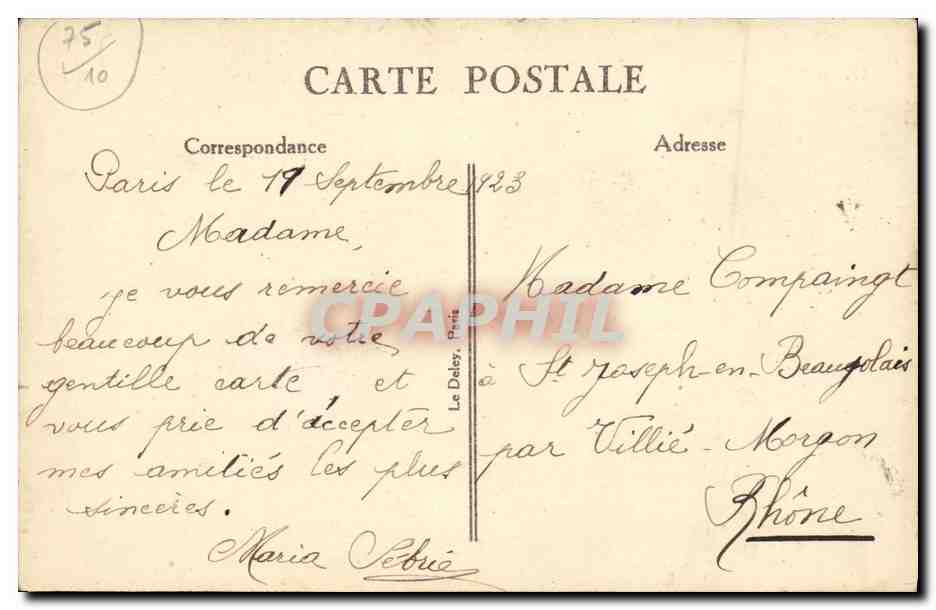 75/10
CARTE POSTALE
Correspondance
Adresse
Paris le 17 Septembre 1923
Madame,
je vous remercie
beaucoup de votre
gentille carte et
vous prie d'accepter
mes amitiés les plus
sincères.
Maria Sébrié
Le Deley, Paris
Madame Compaingt
à St Joseph-en-Beaujolais
par Villié-Morgon
Rhône
CPAPHIL